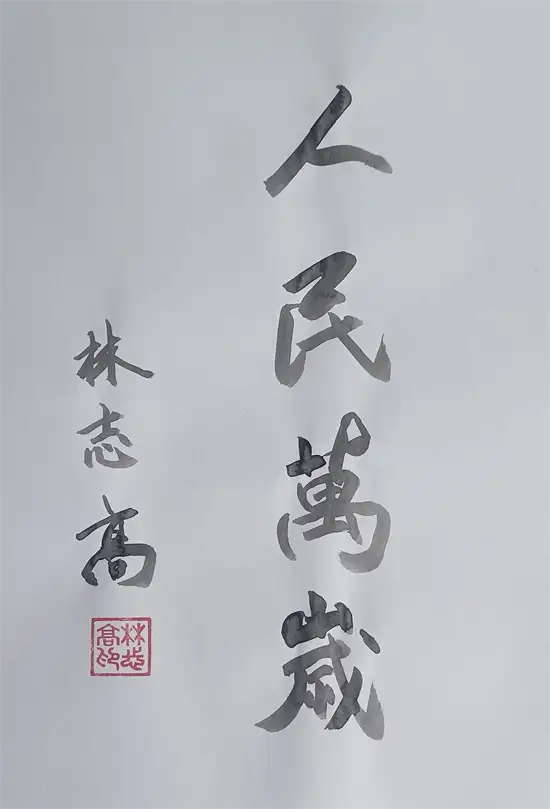 人民萬嵗
林志高
林志
高印